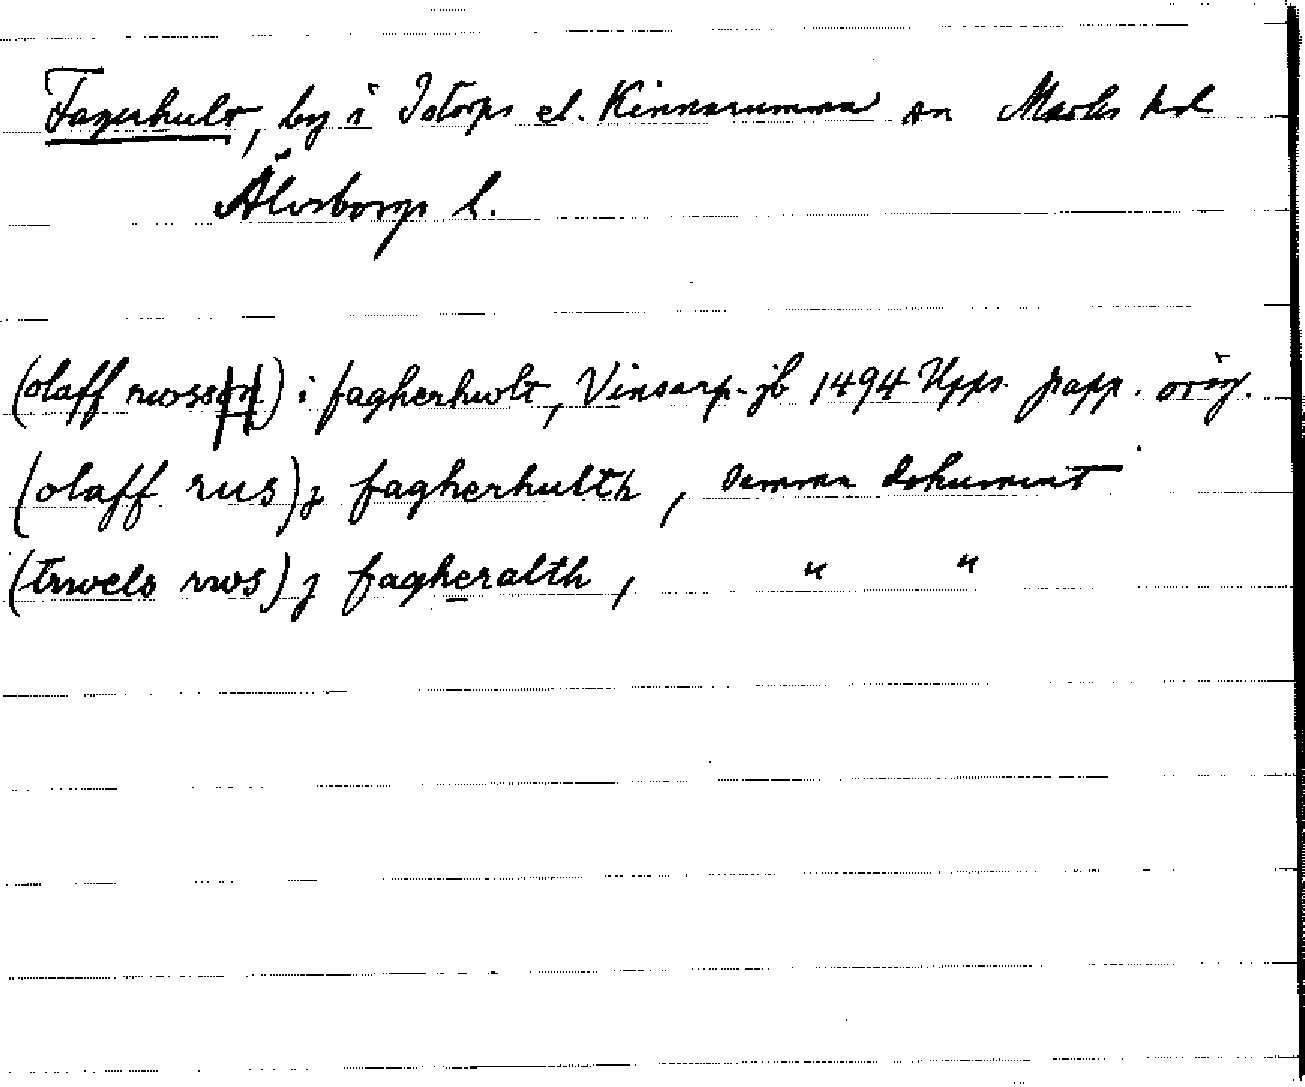 Fagerhult, by i Istorps el. Kinnarumma sn Marks hd
Älvsborgs l.
(olaff rwss) i fagherhwlt, Vinsarp-jb 1494 Upps. papp. orig.
(olaff rus) j fagherhulth, samma dokument
(trwels rws) j fagheralth, " "